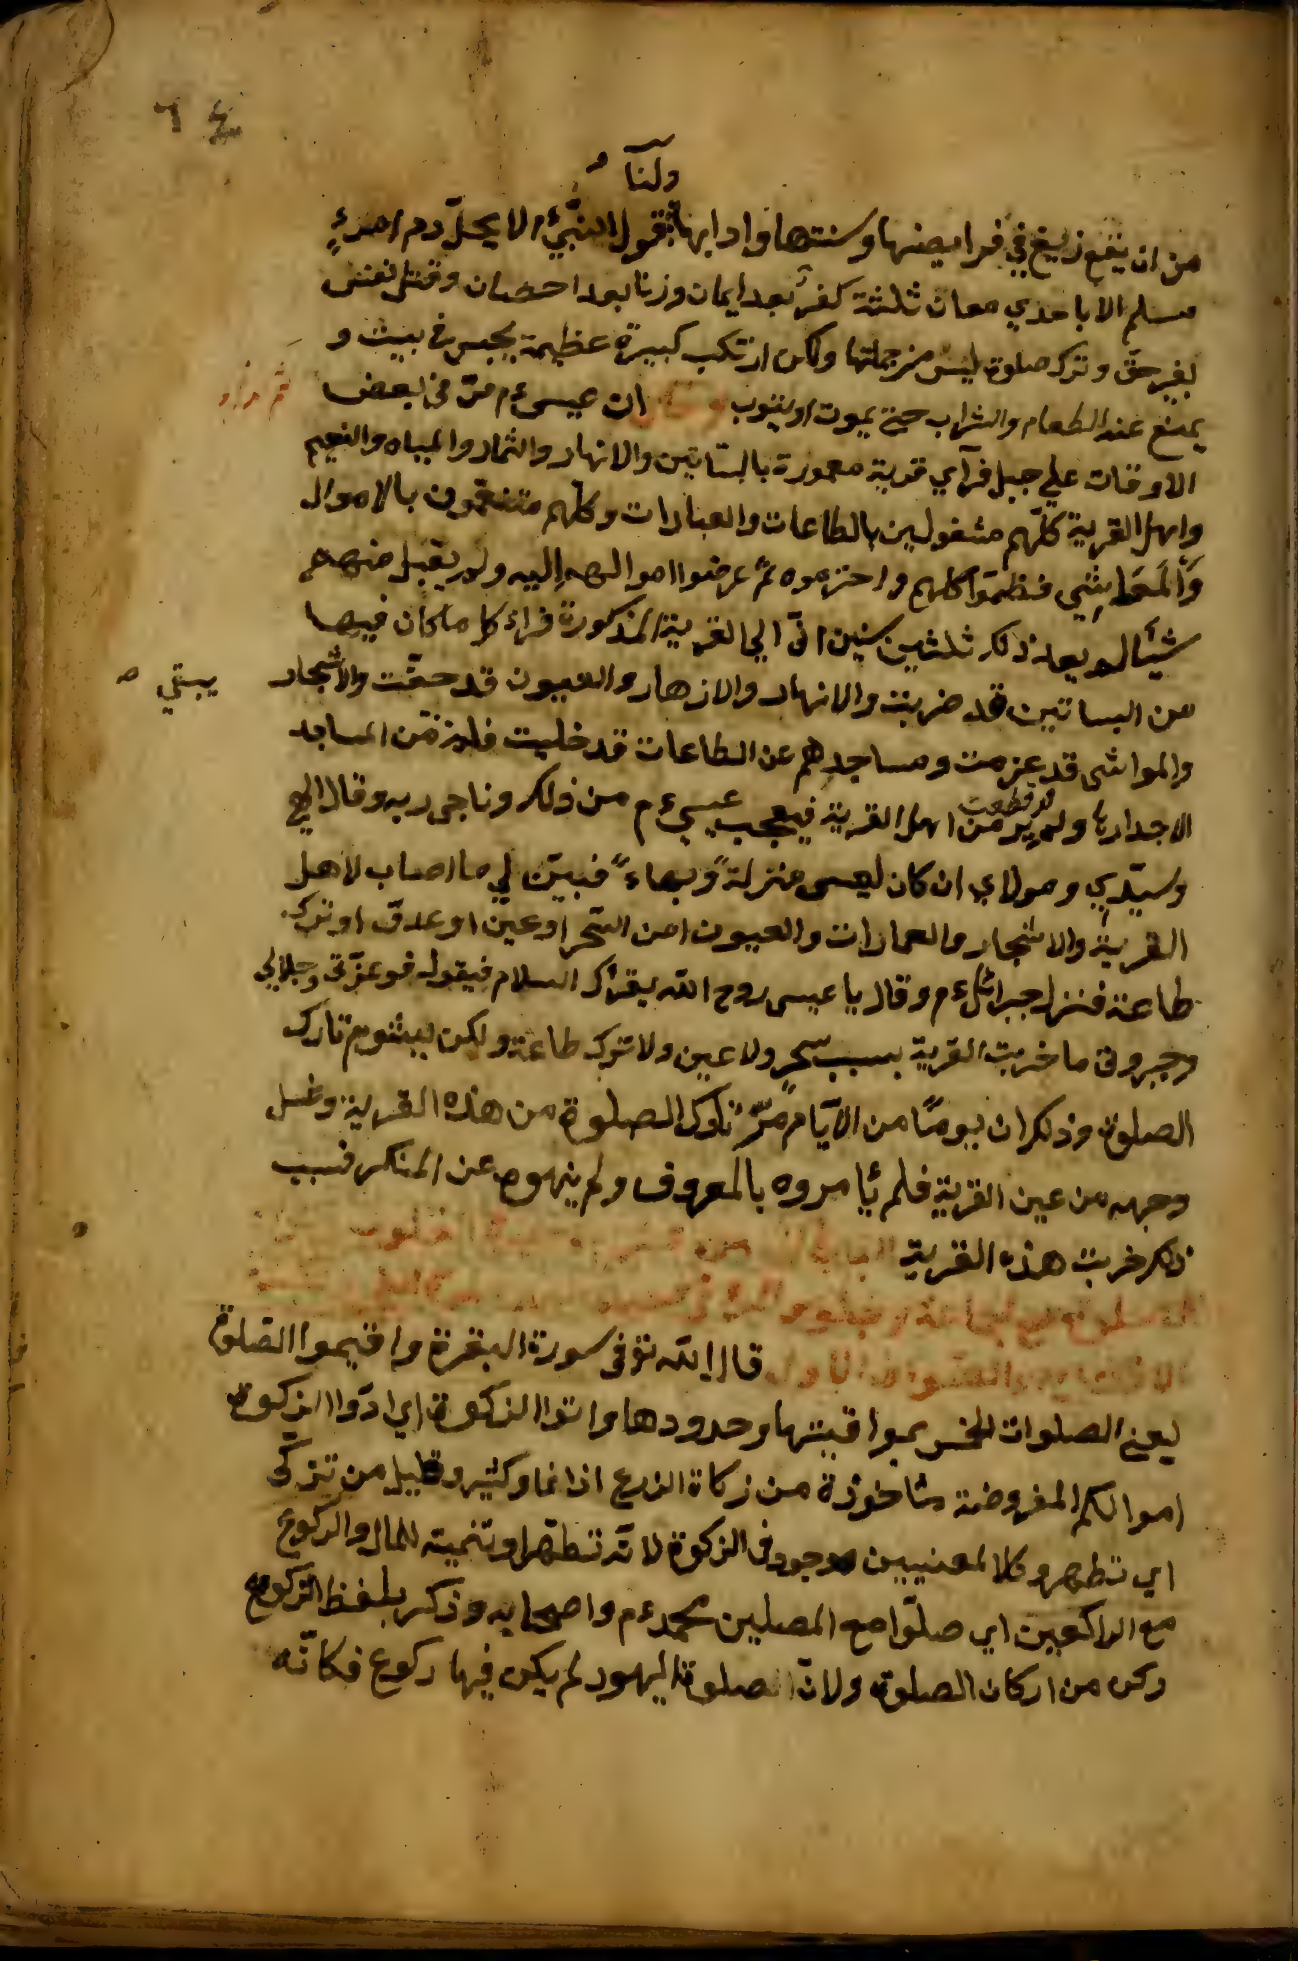 ٦٤
ولنا
من ان يقع زيغ في فرايضها وسنتها وادابها قول النبيّ ءم لا يحلّ دم امرءٍ
مسلم الا باحدي معان ثلثة كفر بعد ايمان وزنا بعد احصان وقتل نفس
بغير حق وترك صلوة ليس من جملتها ولكن ارتكب كبيرة عظيمة يحبس في بيت و
يمنع عنه الطعام والشراب حتي يموت او يتوب ان عيسى ءم مرّ في بعض
الاوقات علي جبل فرآي قرية معمورة بالبساتين والانهار والثمار والمياه والنعيم
واهل القرية كلّهم مشغولين بالطاعات والعبادات وكلّهم متنعّمون بالاموال
وَالمَوَاشِي فعظّموا كلهم واحترموه ثمّ عرضوا اموالهم اليه ولم يقبل منهم
شيئا بعد ذلك ثلثين سنين اتي الي القرية المذكورة فراء كل ما كان فيها
من البساتين قد خربت والانهار والازهار والعيون قد جفّت والاشجار
يبقي
والمواشي قد عزمت ومساجدهم عن الطاعات قد خليت فلم من المساجد
الا جدارها ولم ير من اهل القرية فيعجب عيسي ءم من ذلك وناجى ربه وقال الهي
قد قطعت
وسيّدي ومولاي ان كان لعيسى منزلةً وبهاءً فبيّن لي ما اصاب لاهل
القرية والاشجار والعمارات والعيون امن السّحر او عين او عدوّ او ترك
طاعة فنزل جبرائل ءم وقال يا عيسى روح الله يقرأك السلام فيقول فوعزّتي وجلالي
وجبروتي ما خربت القرية بسبب سحرٍ ولا عين ولا ترك طاعة ولكن بشوم تارك
الصلوة وذلك ان يومًا من الايّام مرّ تارك الصلوة من هذه القرية وغسل
وجهه من عين القرية فلم يأمروه بالمعروف ولم ينهوه عن المنكر فسبب
ذلك خربت هذه القرية
قال الله تع في سورة البقرة واقيموا الصّلوة
يعني الصلوات الخمس بمواقيتها وحدودها واتوا الزكوة اي ادّوا الزّكوة
اموالكم المفروضة مأخوذة من زكاة الزرع اذا نما وكثير وقيل من تزكّى
اي تطهر وكلا المعنيين موجود في الزكوة لانّه تنطهّر وتنمية للمال والركوع
مع الراكعين اي صلّوا مع المصلين محمد ءم واصحابه وذكر بلفظ الرّكوع
ركن من اركان الصلوة ولانّ الصلوة اليهود لم يكن فيها ركوع فكانّه